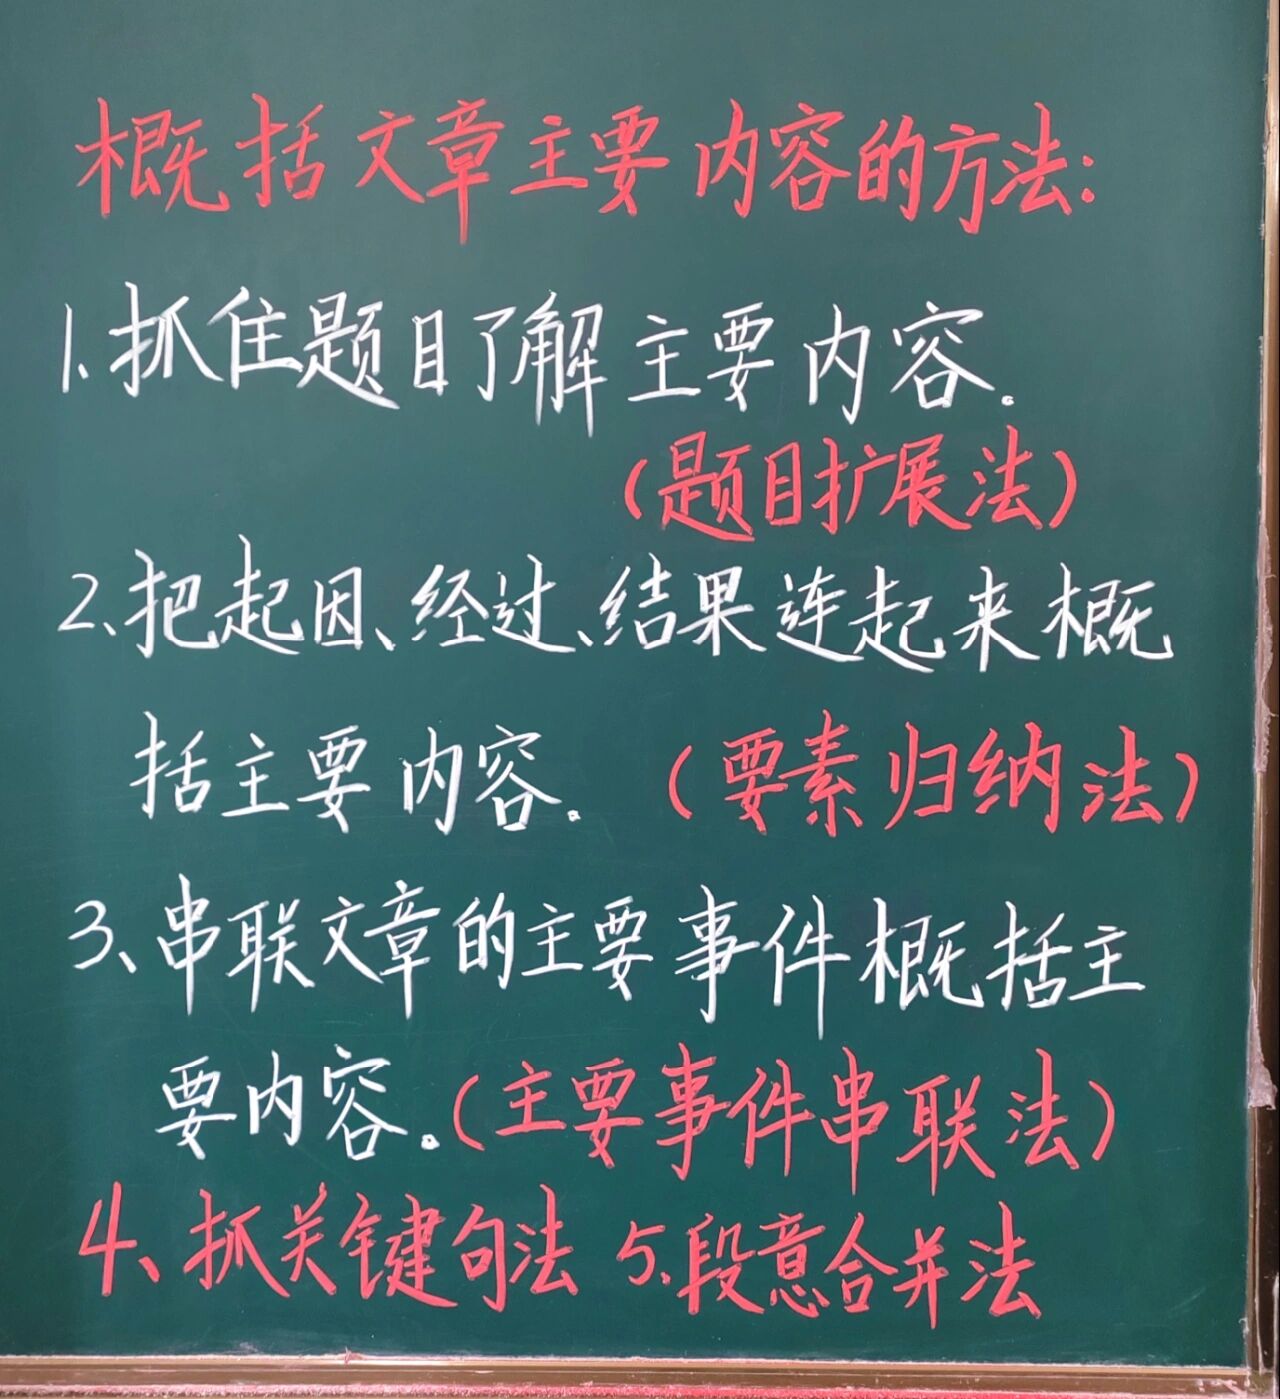 概括文章主要内容的方法:
1.抓住题目了解主要内容。
(题目扩展法)
2、把起因、经过、结果连起来概
括主要内容。(要素归纳法)
3、串联文章的主要事件概括主
要内容。(主要事件串联法)
4、抓关键句法 5、段意合并法